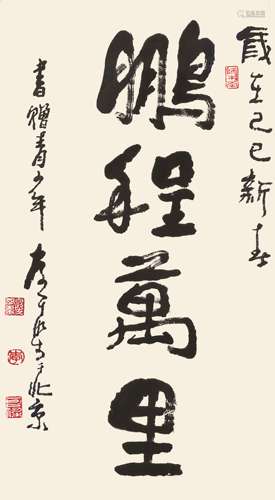 歲在己巳新春
鵬程萬里
書贈青少年
於北京